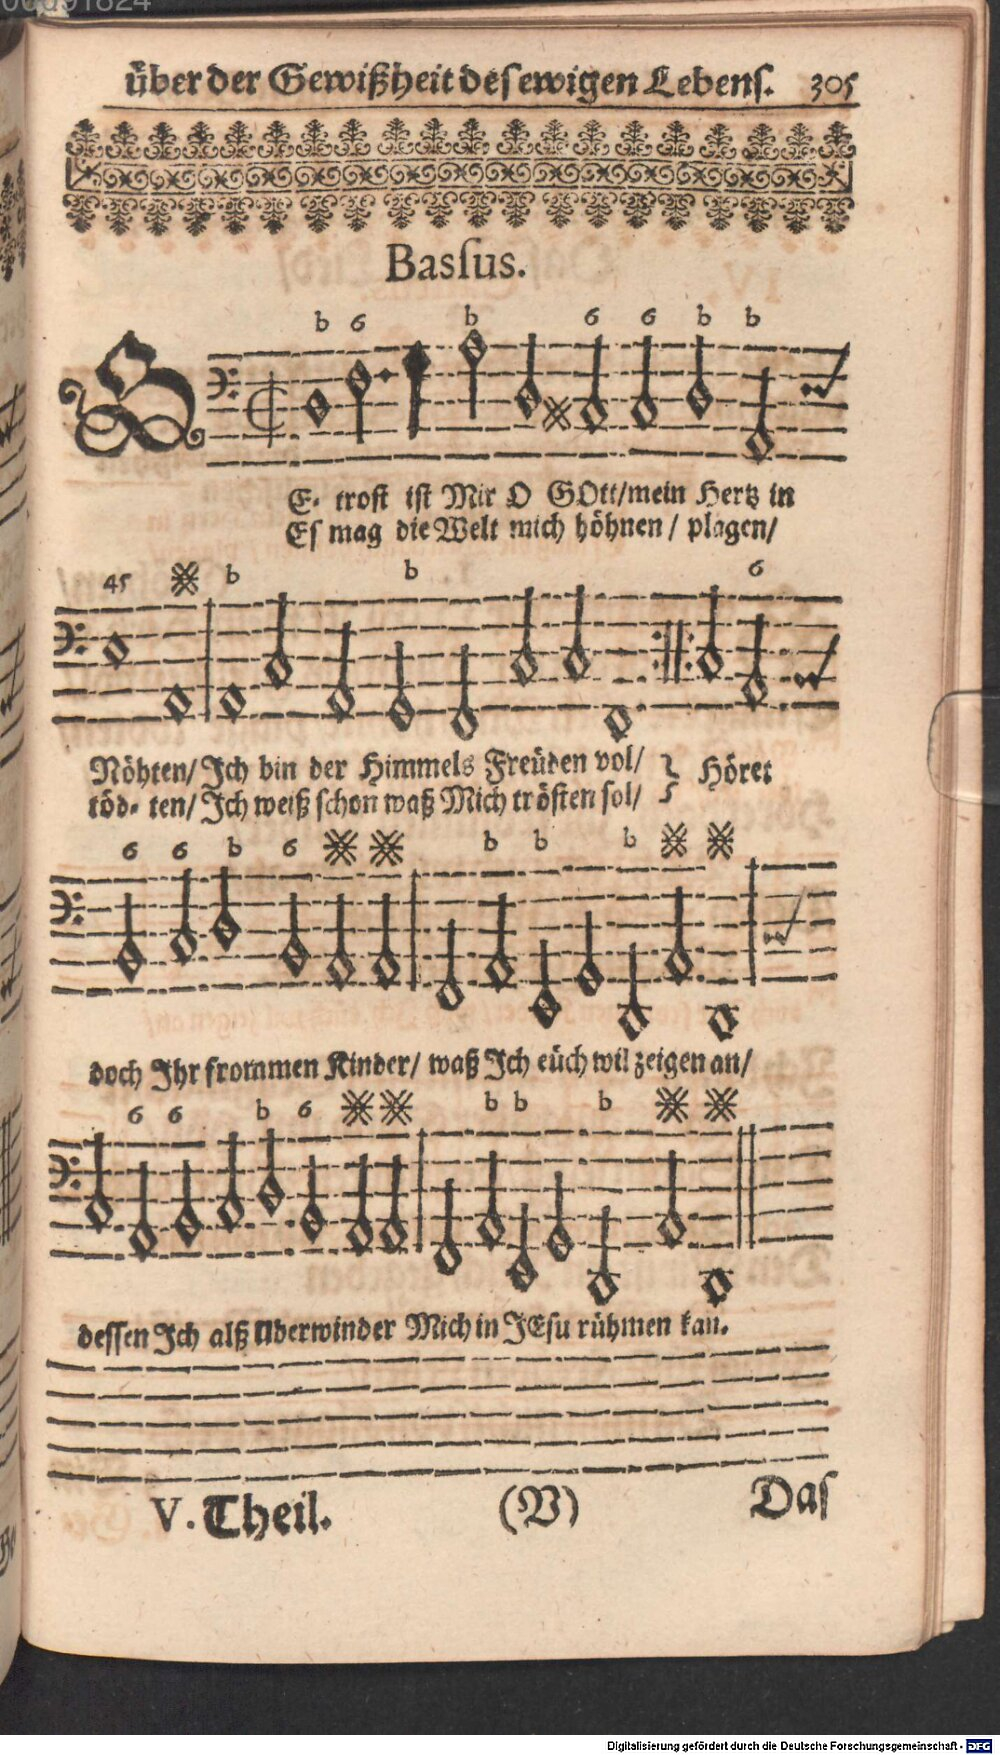 über der Gewißheit deſ ewigen Lebens. 305
Basſus.
b 6 b 6 6 b b
G
E- troſt iſt Mir O GOtt/mein Hertz in
Eſ mag die Welt mich höhnen / plagen/
45 b b 6
Nöhten/ Ich bin der Himmels Freüden vol/ } Höret
töd- ten/ Ich weiß ſchon waß Mich tröſten ſol/
6 6 b 6 b b b
doch Ihr frommen Kinder/ waß Ich eüch wil zeigen an/
6 6 b 6 b b b
deſſen Ich alß Uberwinder Mich in JEſu rühmen kan.
V. Theil. (V) Daſ
Digitalisierung gefördert durch die Deutsche Forschungsgemeinschaft - DFG